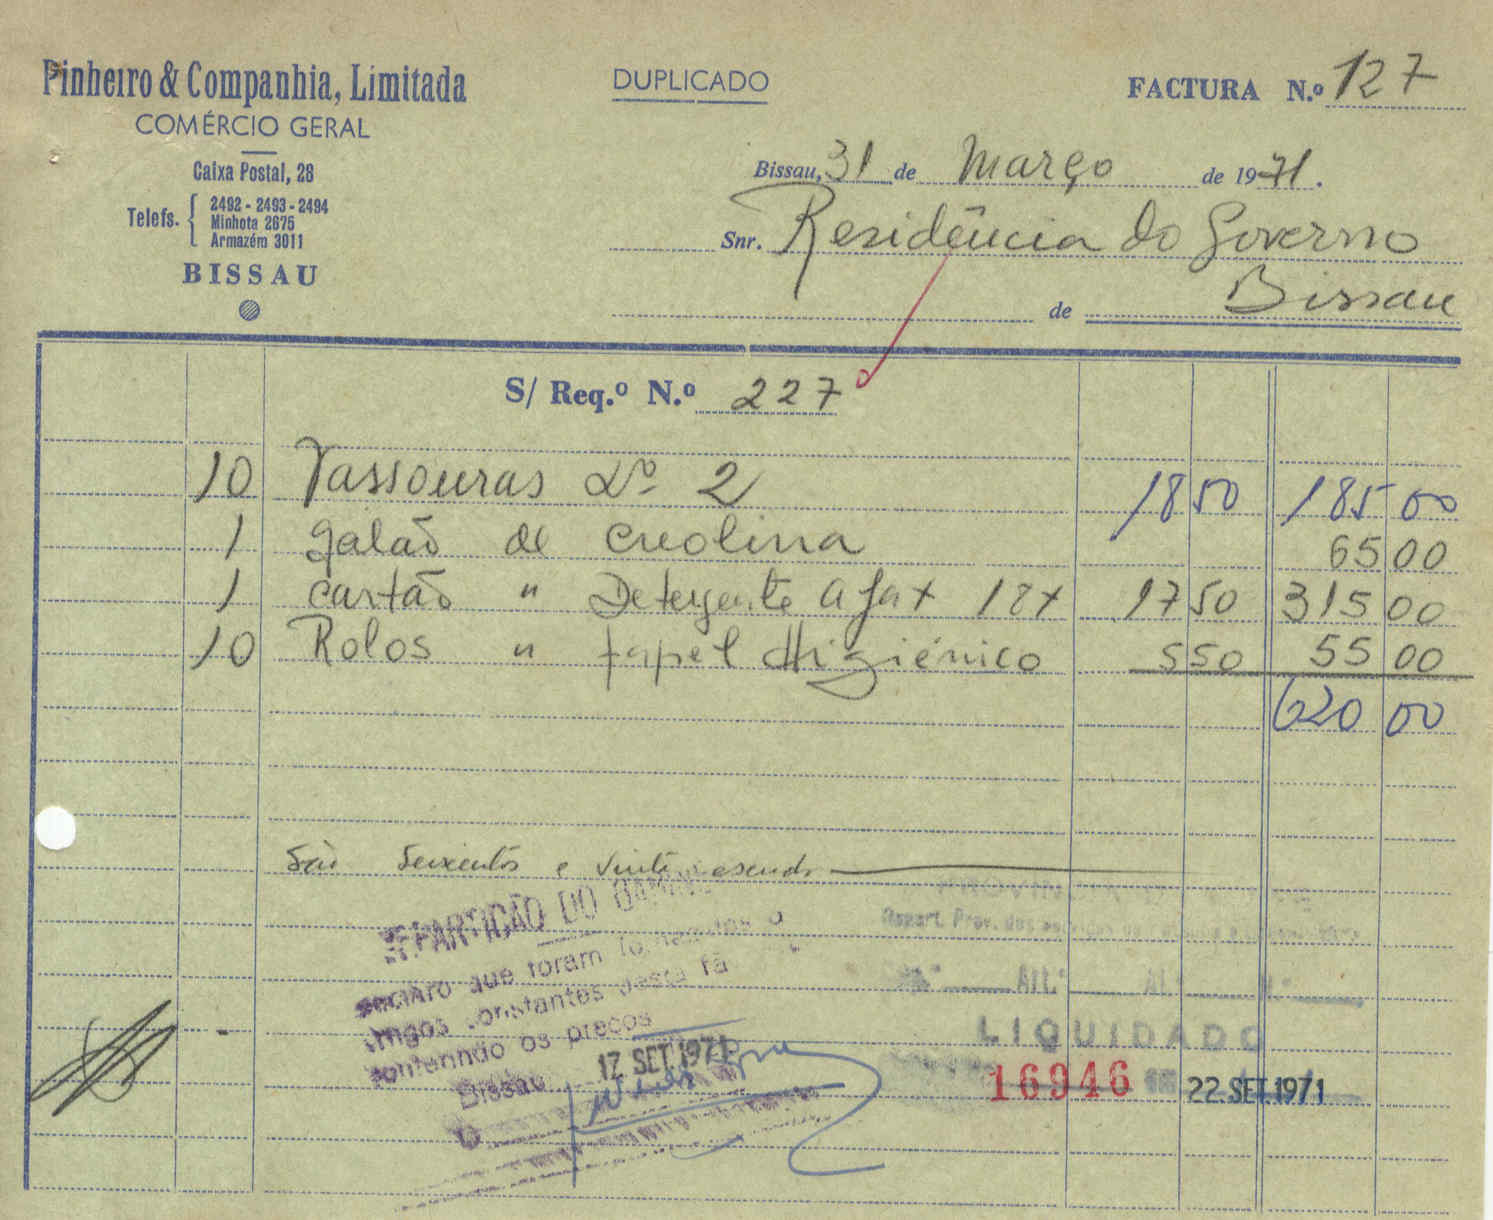 Pinheiro & Companhia, Limitada
COMÉRCIO GERAL
Caixa Postal, 28
Telefs. 2492 - 2493 - 2494
Minhota 2675
Armazém 3011
BISSAU
DUPLICADO
FACTURA N.º 127
Bissau, 31 de Março de 1971.
Snr. Residência do Governo
de Bissau
S/ Req.º N.º 227
10 Vassouras Nº 2 18 50 185 00
1 galão de creolina 65 00
1 cartão " Detergente Ajax 18x 17 50 315 00
10 Rolos " papel Higiénico 5 50 55 00
620 00
São Seiscentos e vinte escudos
REPARTIÇÃO DO GABINETE
declaro que foram tomados
artigos constantes desta fa
os preços
Bissau 17 SET 1971
O
Repart. Prov. dos
Art.
LIQUIDADO
16946 em 22 SET 1971